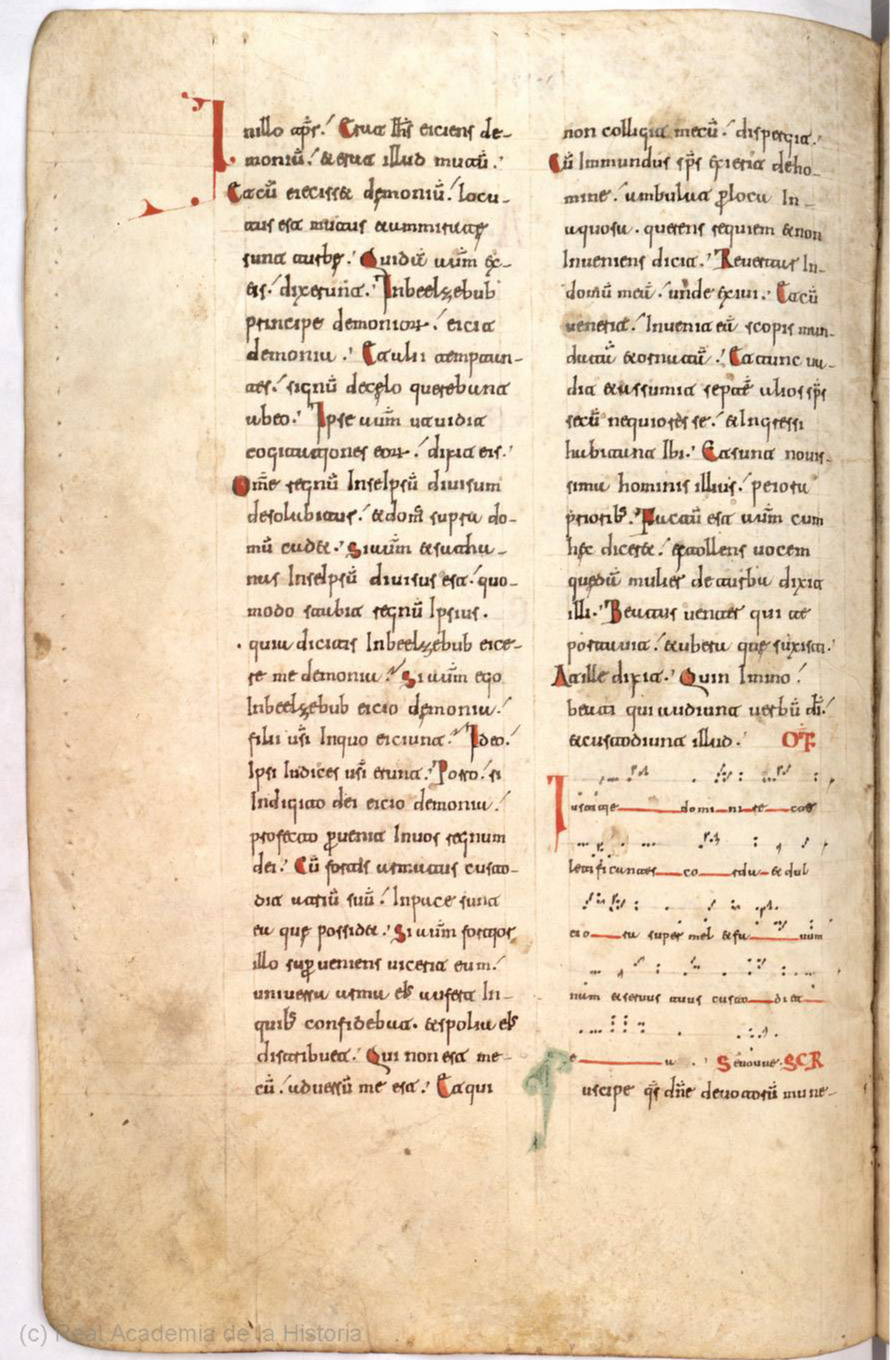 Inillo tp̄r. Erat Ih̄s eiciens de-
moniū. & erat illud mutū.
Et cū eiecisset demoniū. locu-
tus est mutus & ammirate
sunt turbe. Quidā aūm ex
eis. dixerunt. Inbeelzebub
principe demoniorum. eicit
demonia. Et alii temptan-
tes. signū decelo querebant
abeo. Ipse aūm ut vidit
cogitationes eorum. dixit eis.
Om̄e regnū Inseipsū divisum
desolabitur. & dom̄ supra do-
mū cadet. Si aūm & satha-
nas Inseipsū divisus est. quo-
modo stabit regnū Ipsius.
quia dicitis Inbeelzebub eice-
re me demonia. Si aūm ego
Inbeelzebub eicio demonia.
filii ur̄i Inquo eiciunt. Ideo.
Ipsi Iudices ur̄i erunt. Porro. si
Indigito dei eicio demonia.
profecto pvenit Inuos regnum
dei. Cū fortis armatus custo-
dit atriū suū. Inpace sunt
ea que possidet. Si aūm fortior
illo supveniens vicerit eum.
universa arma ei' auferet In-
quib' confidebat. & spolia ei'
distribuet. Qui non est me-
cū. adversū me est. Et qui
non colligit mecū. dispergit.
Cū Immundus sp̄s exierit deho-
mine. ambulat p loca In-
aquosa. querens requiem & non
Inveniens dicit. Revertar In-
domū meā. unde exivi. Et cū
venerit. Invenit eā scopis mun-
datā & ornatā. Et tunc va-
dit & assumit septē alios sp̄s
secū nequiores se. & Ingressi
habitant Ibi. Et sunt novis-
sima hominis illius. peiora
priorib'. Factū est aūm cum
hec diceret. extollens vocem
quedā mulier deturba dixit
illi. Beatus venter qui te
portavit. & ubera que suxisti.
At ille dixit. Quin Immo.
beati qui audiunt verbū dī.
& custodiunt illud. OF.
Iustitie domi ni re cte
letificantes co rda & dul
cio ra super mel & fa uum
nam & servus tuus custo di et
e a. Sevovae. SCR
Suscipe qs̄ dn̄e devotorū mune-
(c) Real Academia de la Historia